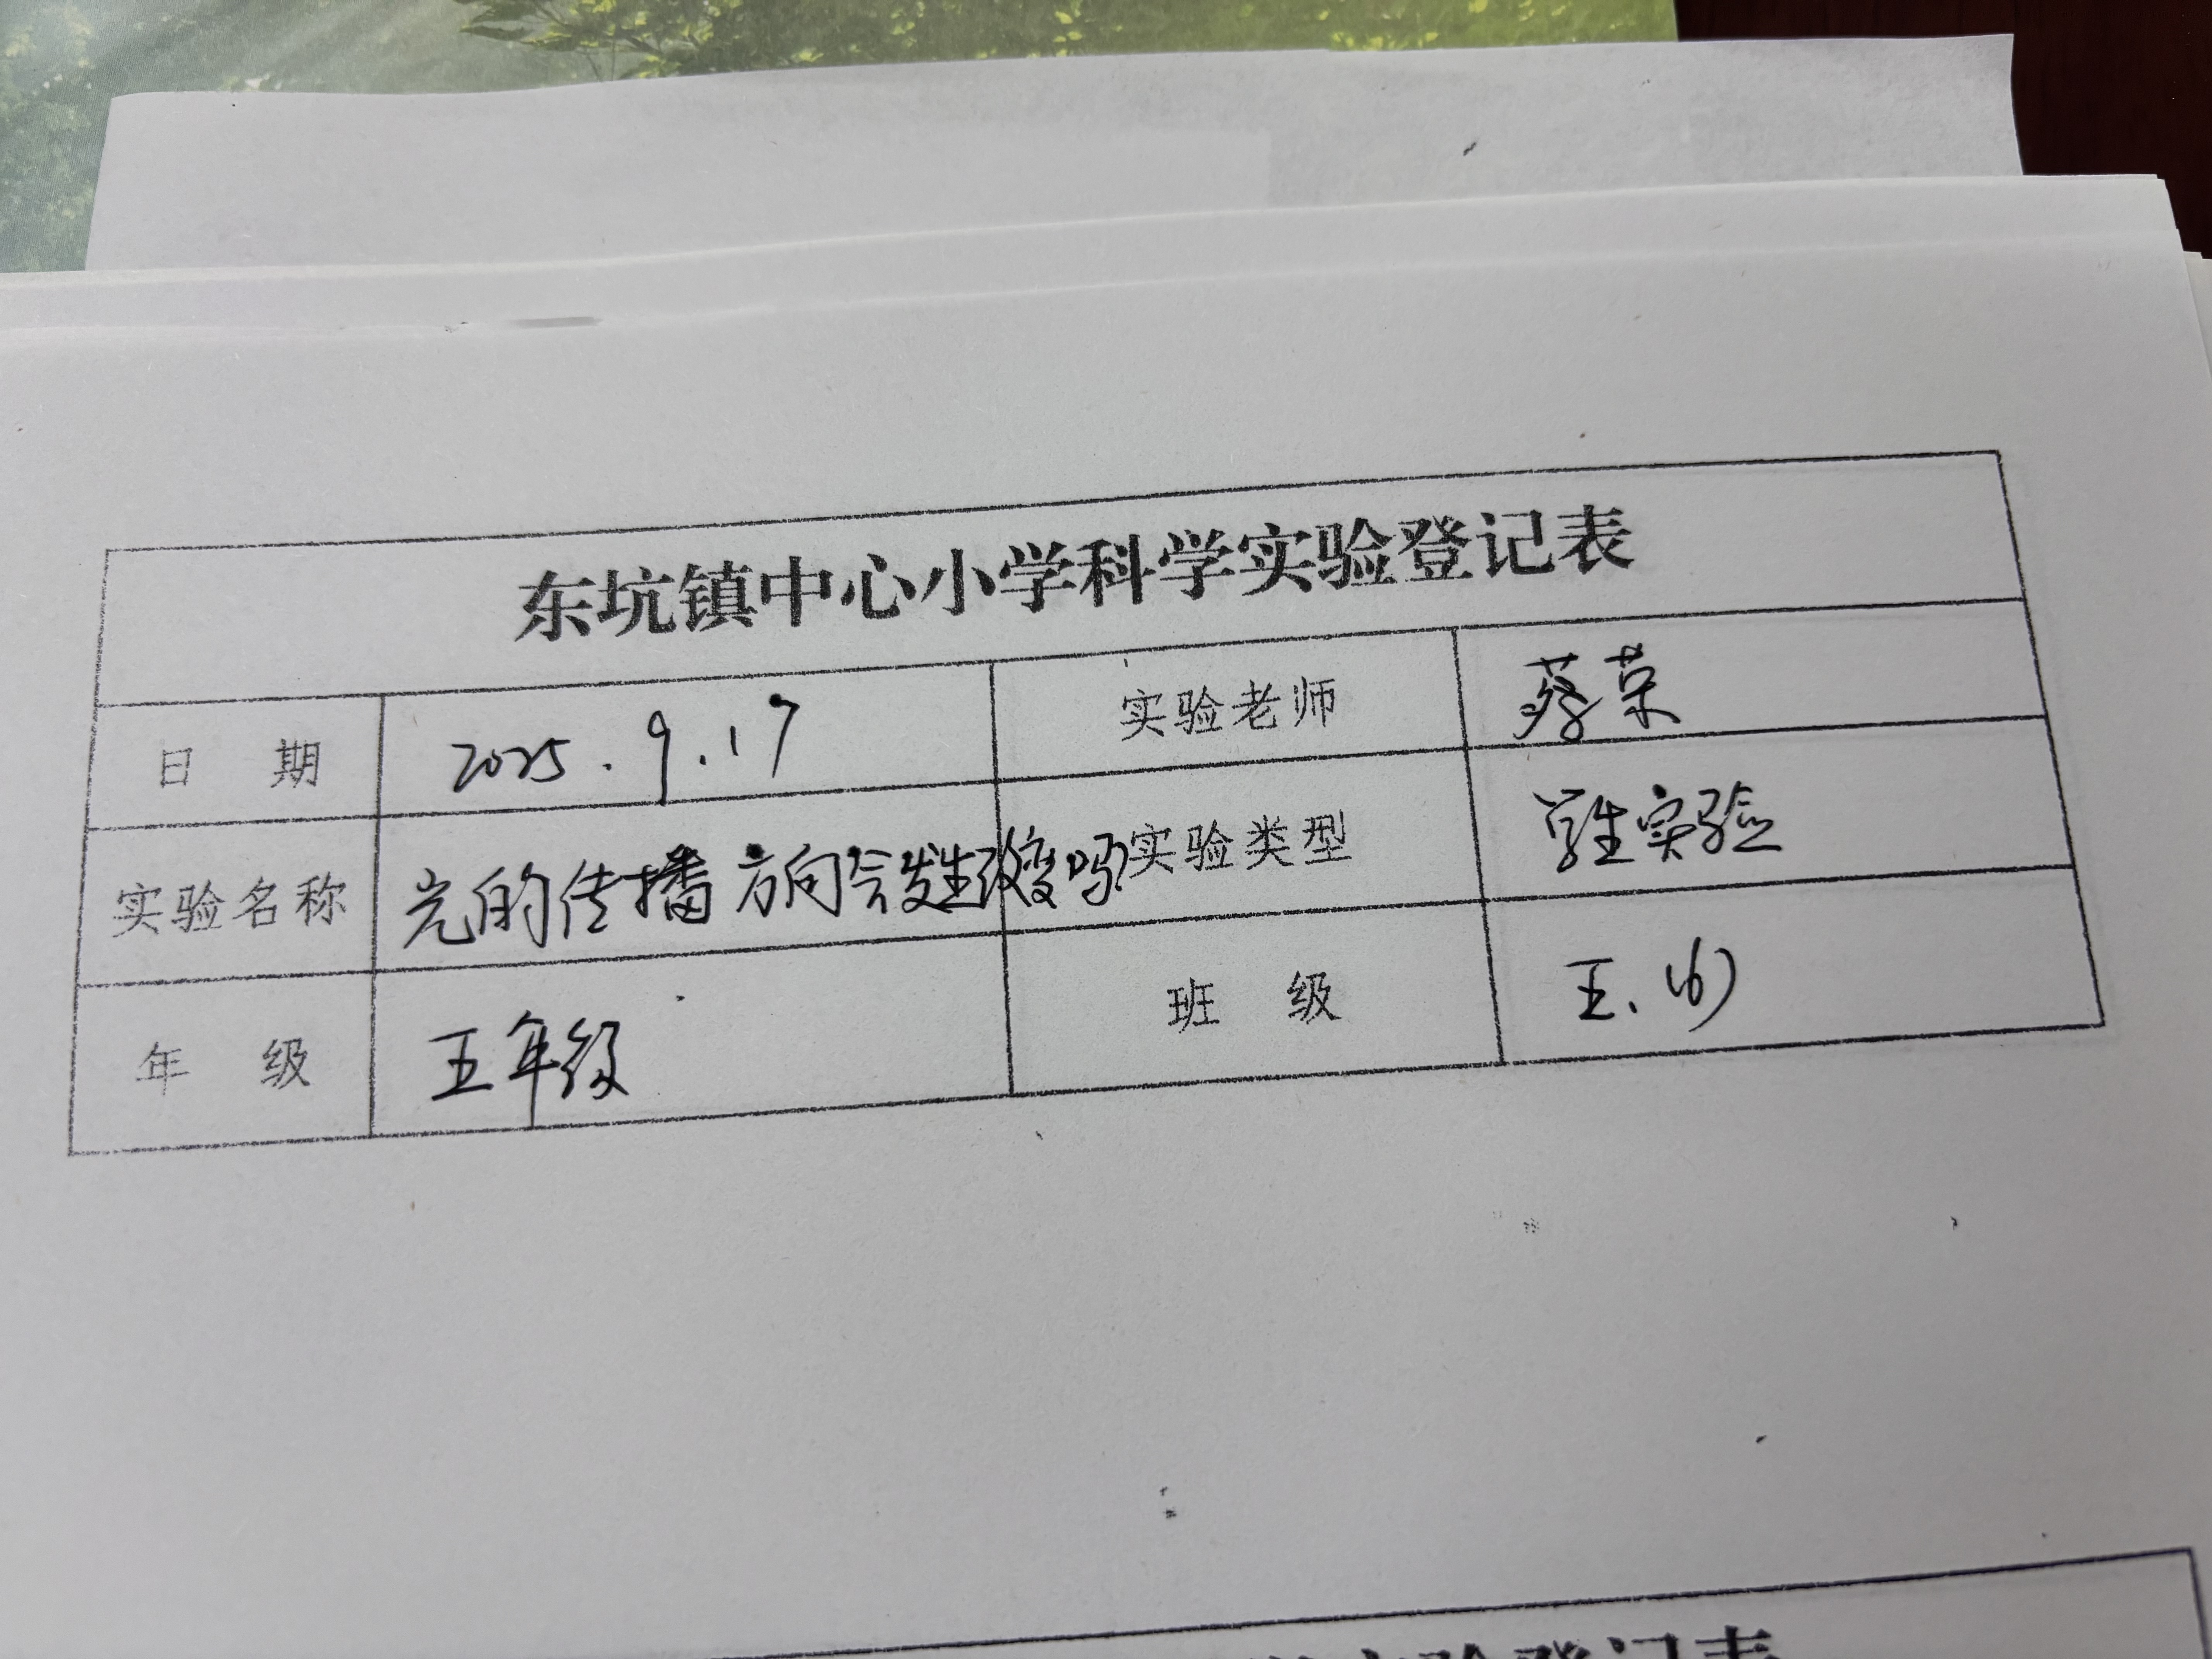 东坑镇中心小学科学实验登记表
日 期 2025.9.17 实验老师 蔡荣
实验名称 光的传播方向会发生改变吗? 实验类型 学生实验
年 级 五年级 班 级 五、(6)
实验登记表